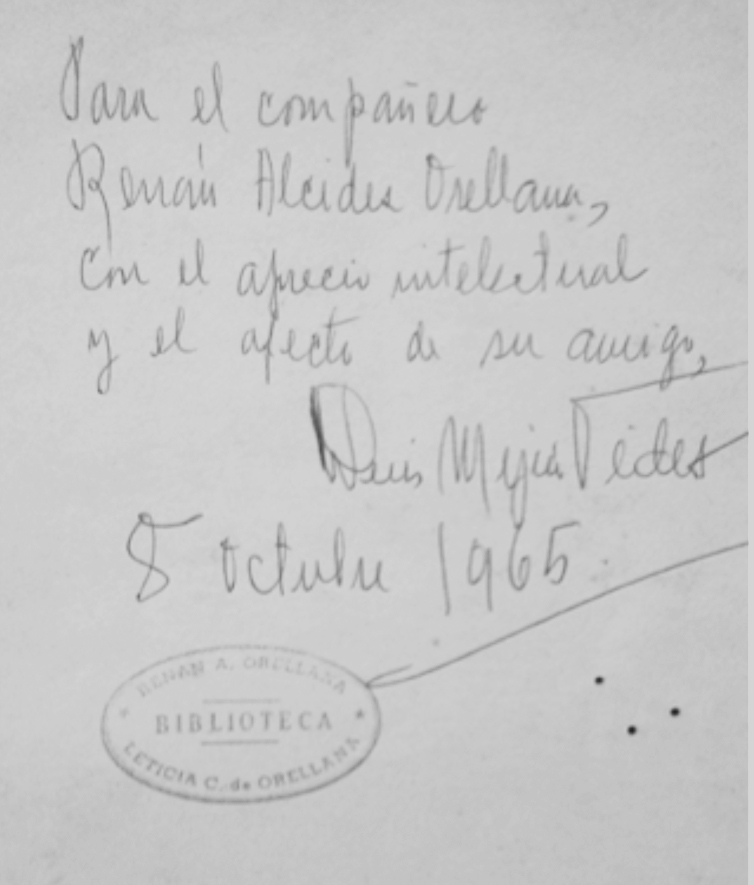 Para el compañero
Renán Alcides Orellana,
con el aprecio intelectual
y el afecto de su amigo,
Luis Mejía Vides
8 octubre 1965.
RENAN A. ORELLANA
BIBLIOTECA
LETICIA C. de ORELLANA